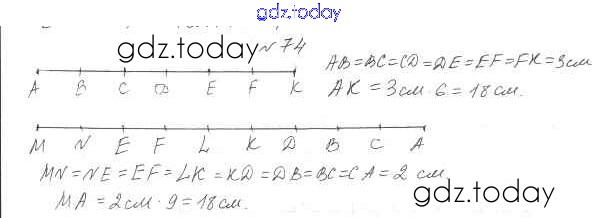 gdz.today
gdz.today
№ 74
AB=BC=CD=DE=EF=FK=3см
A B C D E F K
AK = 3см · 6 = 18 см.
M N E F L K D B C A
MN=NE=EF=LK=KD=DB=BC=CA=2 см
MA = 2см · 9 = 18см.
gdz.today